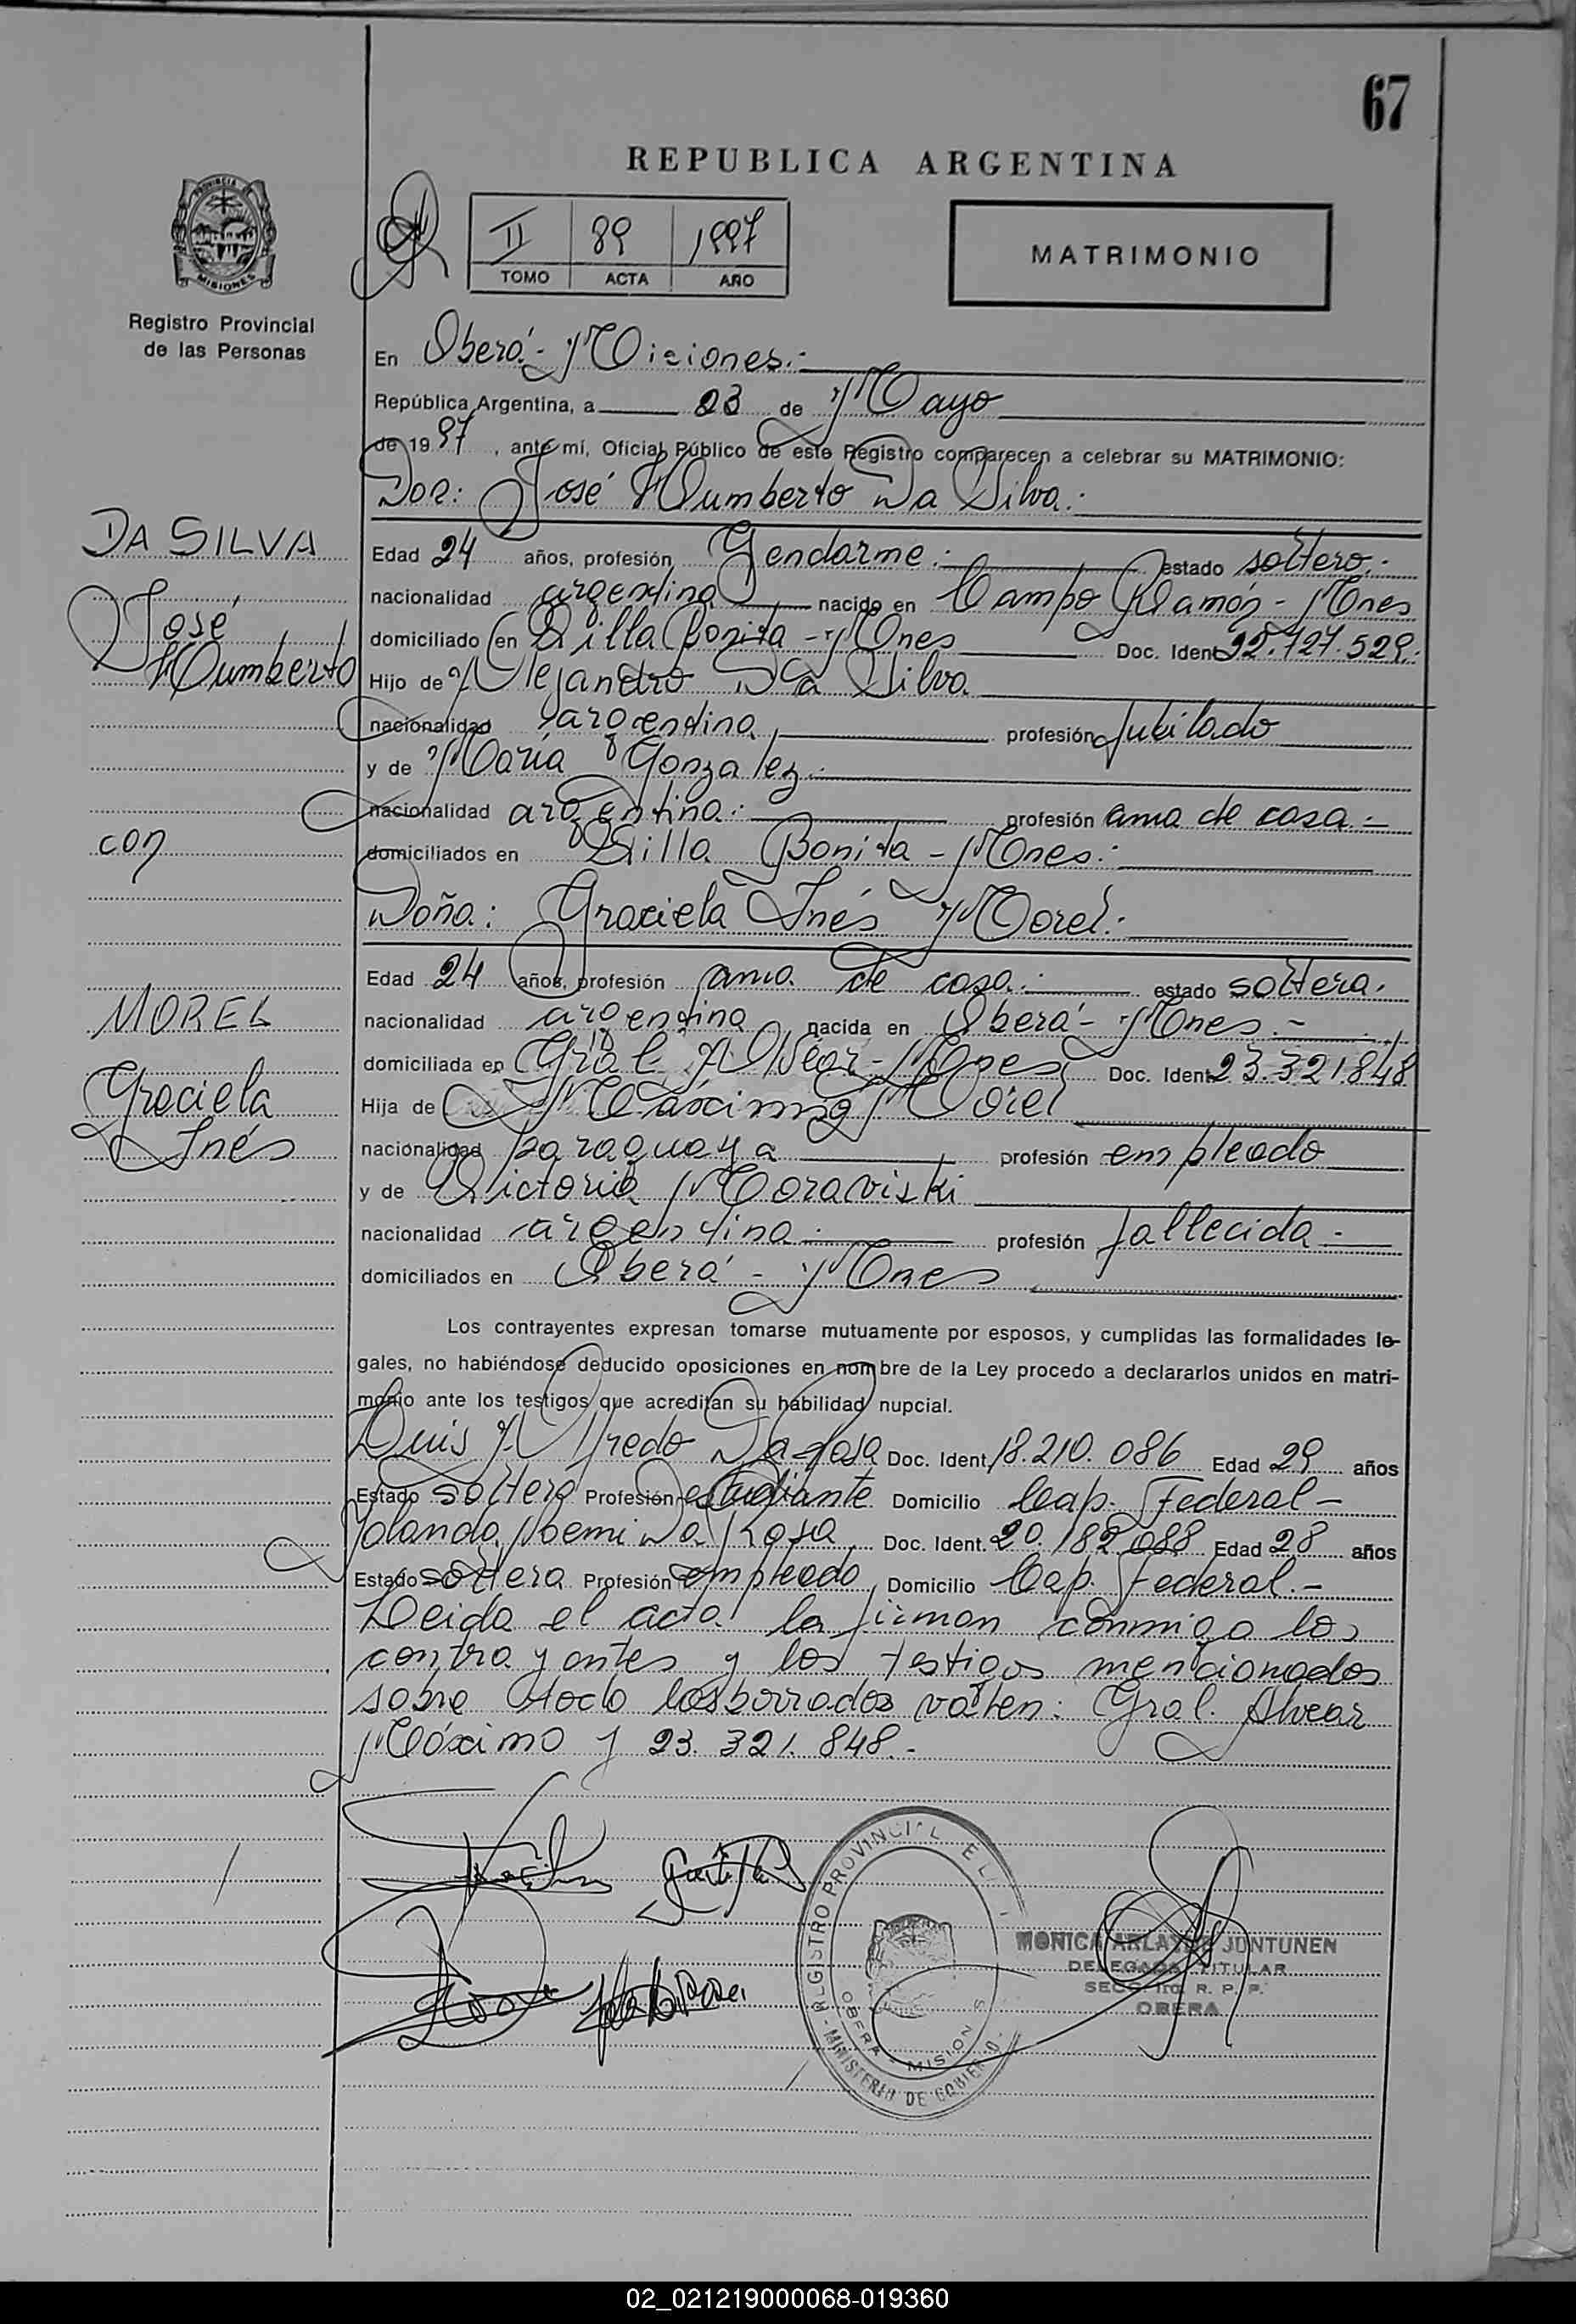 67
REPUBLICA ARGENTINA
II 89 1997
TOMO ACTA AÑO
MATRIMONIO
PROVINCIA DE MISIONES
Registro Provincial
de las Personas
En Oberá - Misiones.-
República Argentina, a 23 de Mayo
de 1997, ante mí, Oficial Público de este Registro comparecen a celebrar su MATRIMONIO:
Don: José Humberto Da Silva.
DA SILVA
Edad 24 años, profesión Gendarme.- estado soltero.-
nacionalidad argentina nacido en Campo Ramón - Mnes
José
domiciliado en Villa Bonita - Mnes Doc. Ident. 22.727.529.
Humberto
Hijo de Alejandro Da Silva
nacionalidad argentina profesión Jubilado
y de María Gonzalez.-
nacionalidad argentina.- profesión ama de casa.-
con
domiciliados en Villa Bonita - Mnes.-
Doña: Graciela Inés Morel.-
Edad 24 años, profesión ama de casa.- estado soltera.
MOREL
nacionalidad argentina nacida en Oberá - Mnes.-
domiciliada en Gral. Alvear - Mnes Doc. Ident. 23.321.848
Graciela
Hija de Máximo Morel
Inés
nacionalidad paraguaya profesión empleado
y de Victoria Moraviski
nacionalidad argentina.- profesión fallecida.-
domiciliados en Oberá - Mnes
Los contrayentes expresan tomarse mutuamente por esposos, y cumplidas las formalidades le-
gales, no habiéndose deducido oposiciones en nombre de la Ley procedo a declararlos unidos en matri-
monio ante los testigos que acreditan su habilidad nupcial.
Luis Alfredo Da Rosa Doc. Ident. 18.210.086 Edad 29 años
Estado soltero Profesión estudiante Domicilio Cap. Federal -
Yolanda Noemi Da Rosa Doc. Ident. 20.182.088 Edad 28 años
Estado soltera Profesión empleado Domicilio Cap. Federal.-
Leida el acta la firman conmigo los
contrayentes y los testigos mencionados
sobre todo los borrados valen: Gral. Alvear
Máximo y 23.321.848.-
REGISTRO PROVINCIAL
OBERA - MISIONES
MINISTERIO DE GOBIERNO
MONICA JUNTUNEN
DELEGADA TITULAR
SECC. R. P. P.
OBERA
02_021219000068-019360